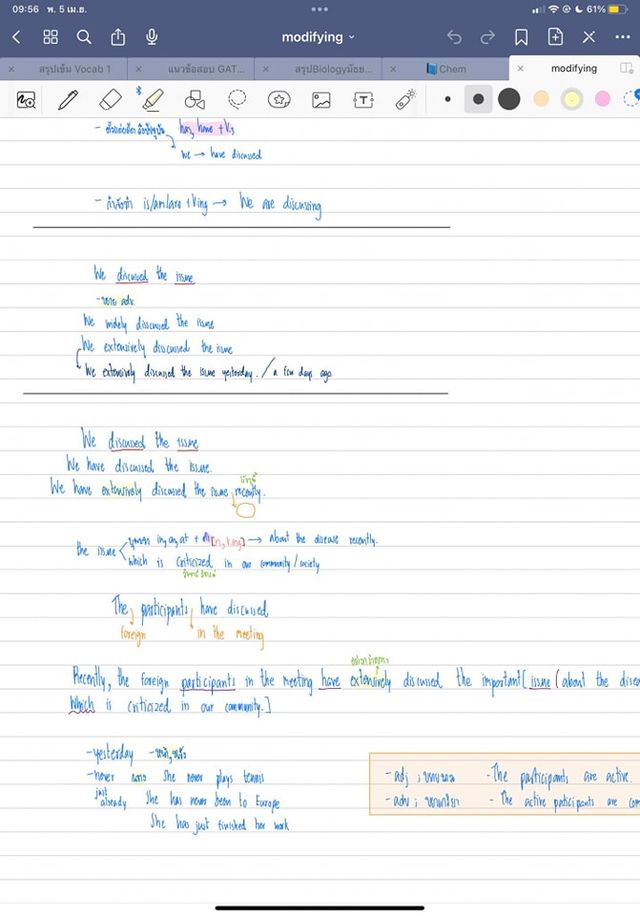 09:56 พ. 5 เม.ย. 61%
modifying
สรุปเข้ม Vocab 1 แนวข้อสอบ GAT... สรุปBiologyมัธย... Chem modifying
has, have + V.3
we → have discussed
- กำลังทำ is/am/are + Ving → We are discussing
We discussed the issue
- ขยาย adv.
We widely discussed the issue
We extensively discussed the issue
We extensively discussed the issue yesterday. / a few days ago
We discussed the issue
We have discussed the issue.
We have extensively discussed the issue recently.
the issue
in, on, at + [n, Ving] → about the disease recently.
which is criticized in our community / society
The participants have discussed
foreign in the meeting
Recently, the foreign participants in the meeting have extensively discussed the important [issue (about the disea
which is criticized in our community.]
- yesterday
- never She never plays tennis
just
already She has never been to Europe
She has just finished her work
- adj ; ขยายนาม - The participants are active.
- adv ; ขยายกริยา - The active participants are com